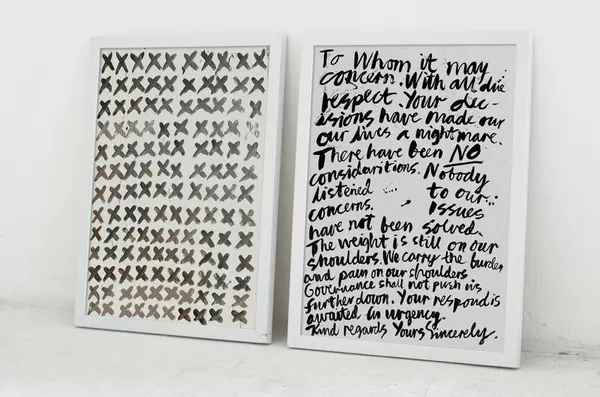 To Whom it may
concern. With all due
respect. Your dec-
isions have made our
our lives a nightmare.
There have been NO
considaritions. Nobody
listened ... to our
concerns. Issues
have not been solved.
The weight is still on our
shoulders. We carry the burden
and pain on our shoulders
Governance shall not push us
further down. Your respond is
awaited in urgency.
Kind regards Yours Sincerely.